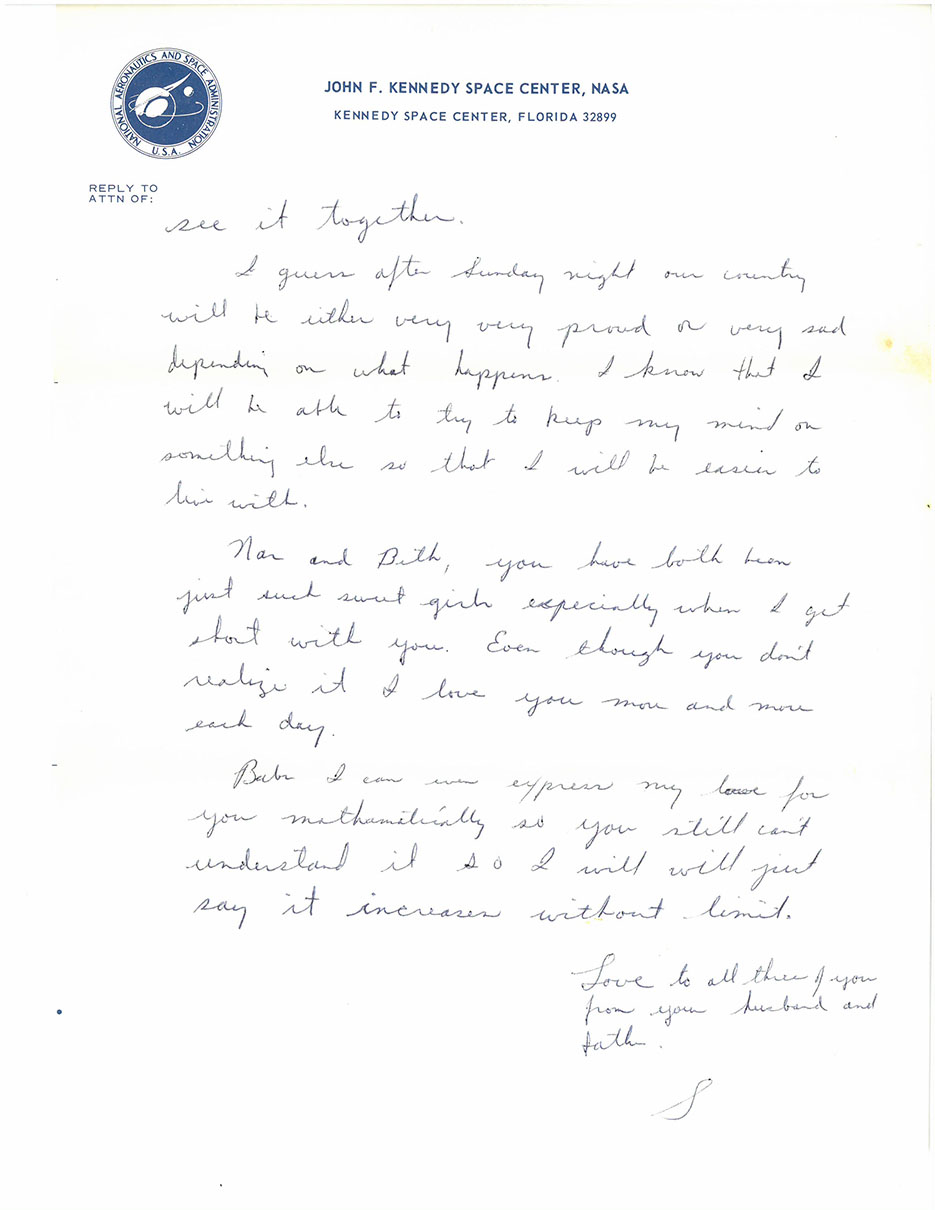 NATIONAL AERONAUTICS AND SPACE ADMINISTRATION
U.S.A.
JOHN F. KENNEDY SPACE CENTER, NASA
KENNEDY SPACE CENTER, FLORIDA 32899
REPLY TO
ATTN OF:
see it together.
I guess after Sunday night our country
will be either very very proud or very sad
depending on what happens. I know that I
will be able to try to keep my mind on
something else so that I will be easier to
live with.
Nan and Beth, you have both been
just such sweet girls especially when I get
short with you. Even though you don't
realize it I love you more and more
each day.
Babe I can even express my love for
you mathamatically so you still can't
understand it so I will will just
say it increases without limit.
Love to all three of you
from your husband and
father.
S